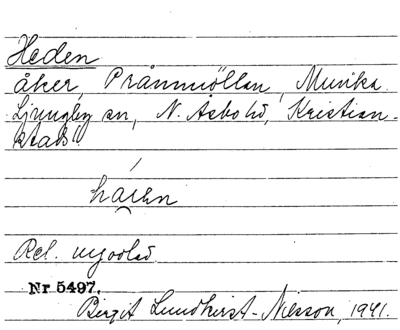 Heden
åker, Prånmöllan, Munka
Ljungby sn, N. Åsbo hd, Kristian-
stads
háien
Rel. ugodsd
Nr 5497.
Birgit Lundkvist-Nilsson, 1941.